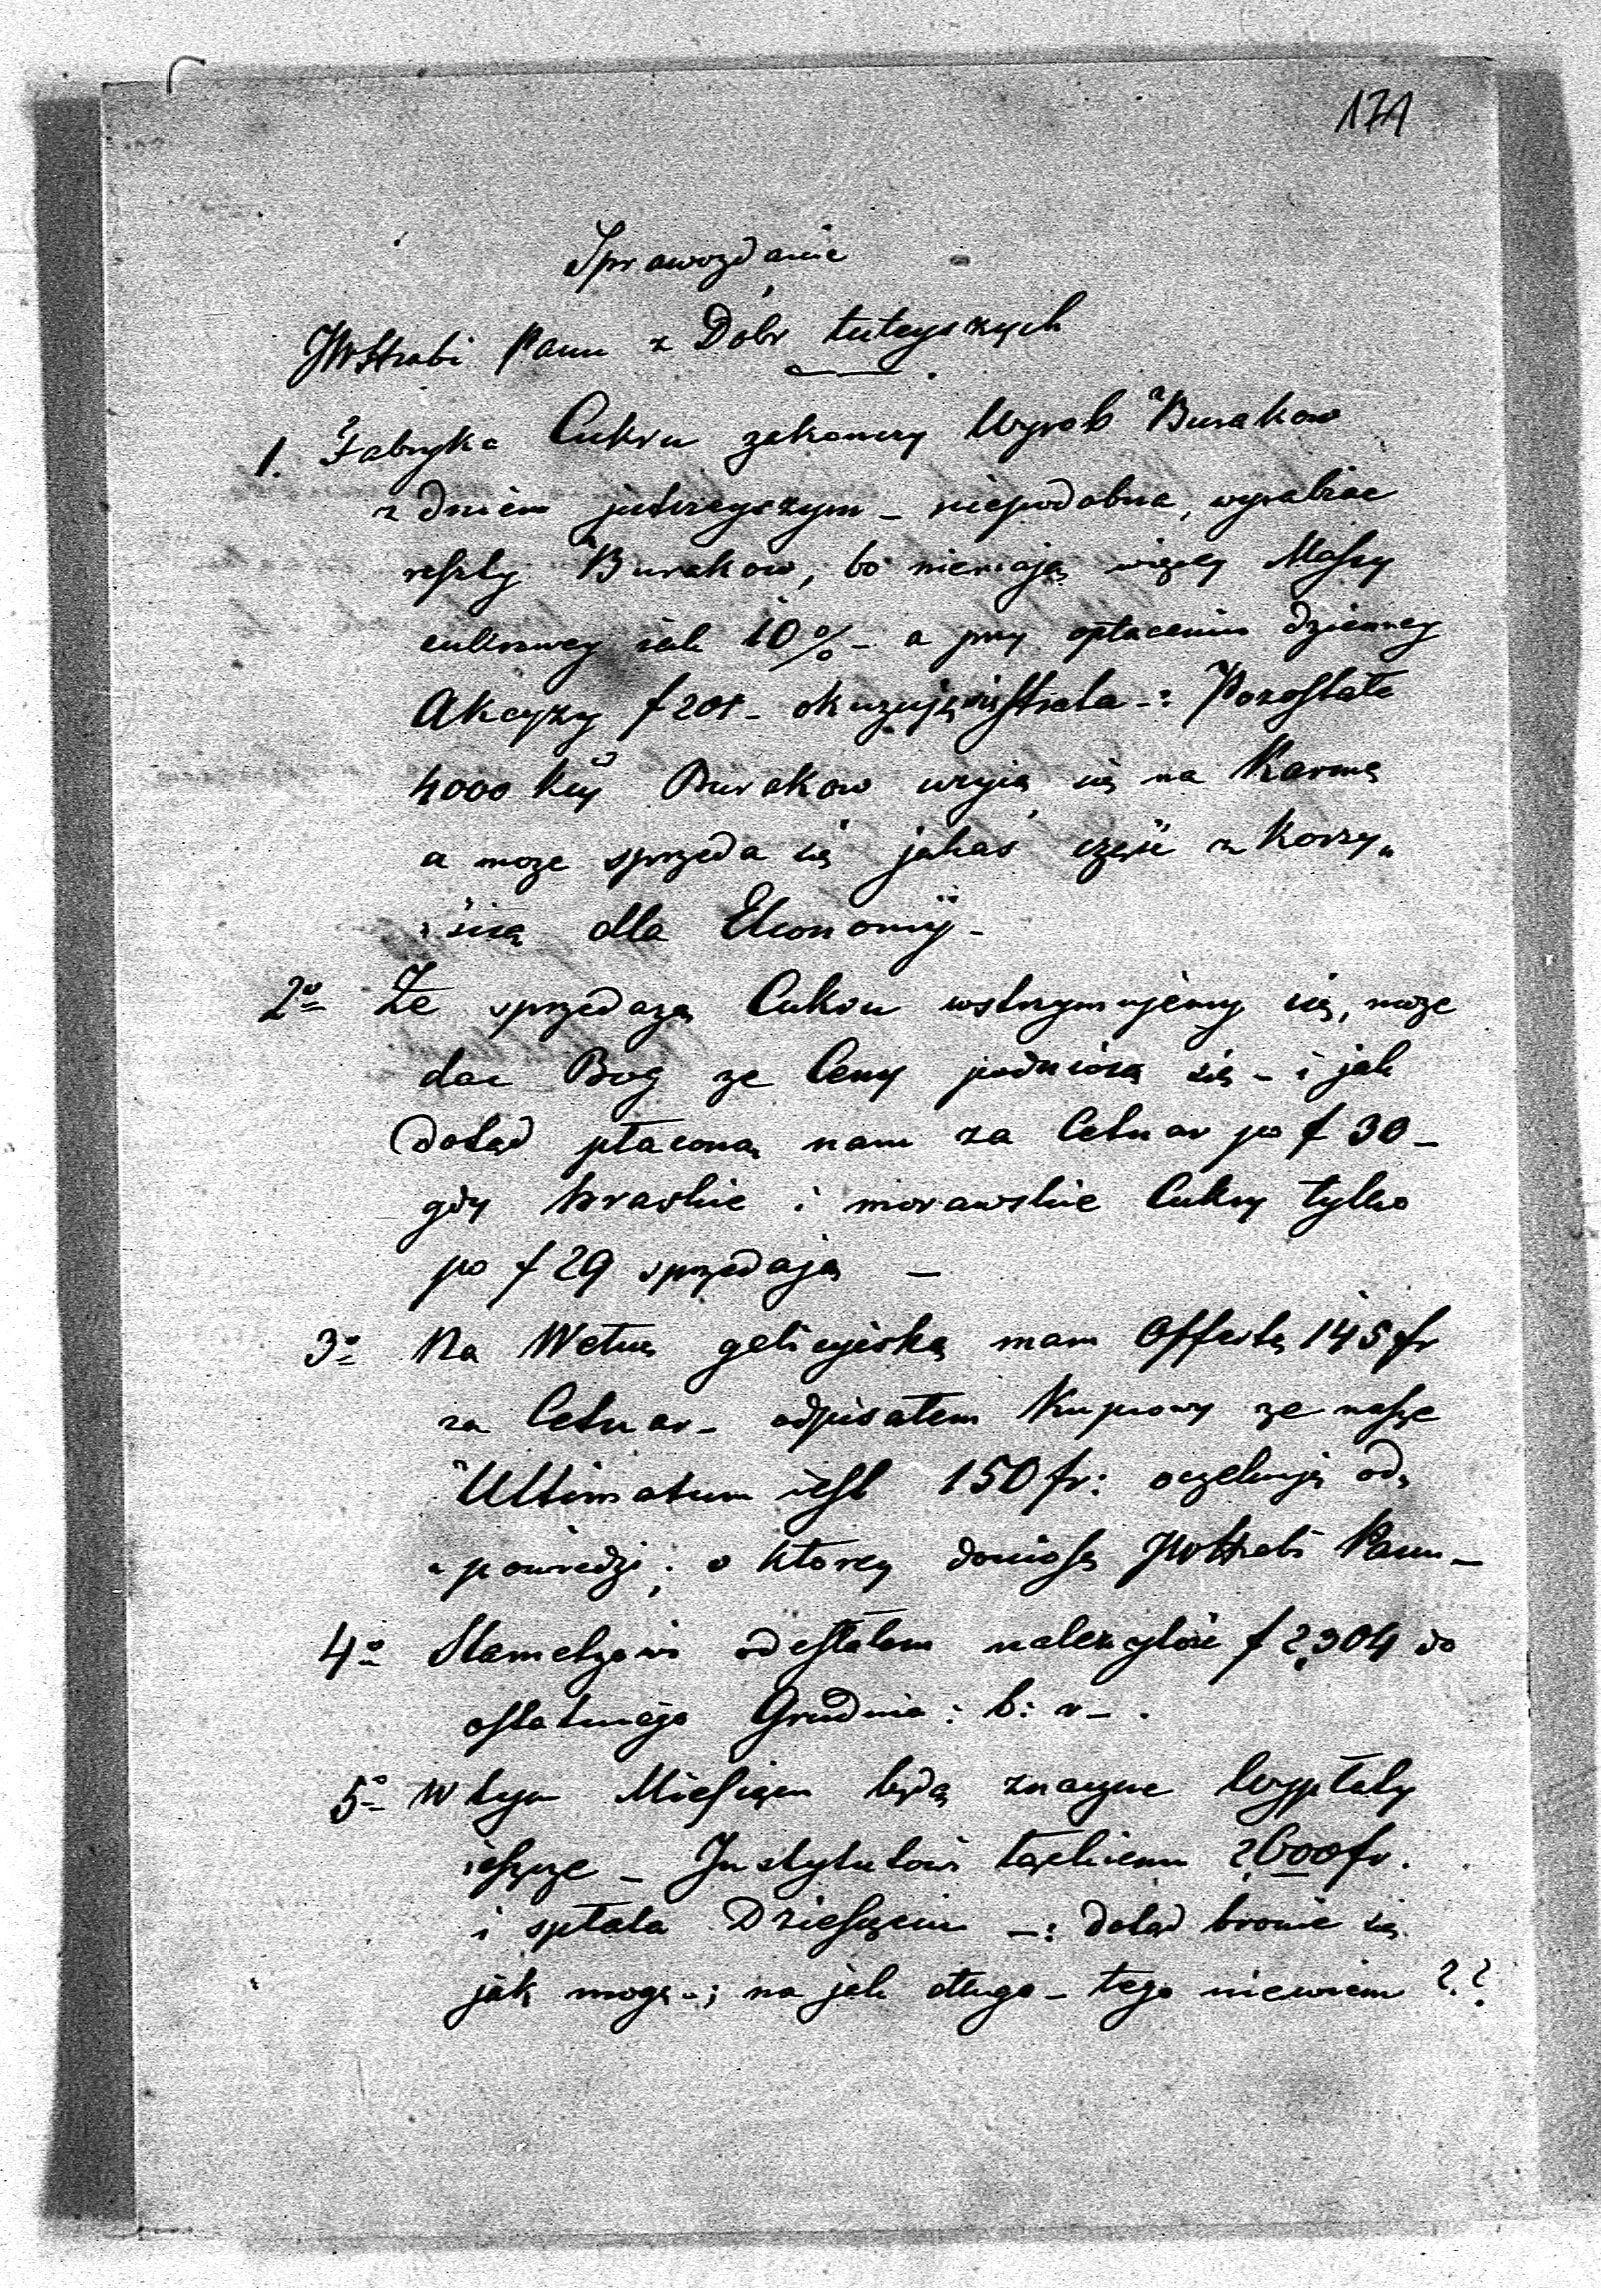 171
Sprawozdanie
JWHrabi Panu z Dobr tuteyszych
1. Fabryka Cukru zakonczy Wyrob Burakow
z dniem jutrzeyszym – niepodobna, wyrabiac
reszty Burakow, bo niemają więcey Massy
cukrowey iak 10% – a przy opłaceniu dzienney
Akcyzy f 201 – okazuje się strata –: Pozostałe
4000 Burakow użyią się na Karmę
a moze sprzeda się jakaś częsć z Korzy„
„ scią dla Ekonomij –
2o Ze sprzedazą Cukru wstrzymujemy się, moze
dac Bog ze Ceny podniosą się – i jak
dotąd płaconą nam za Cetnar po f 30 –
gdy i morawskie Cukry tylko
po f 29 sprzedają –
3o Na Wełnę galicyiską mam Offertę 145 fr
za Cetnar – odpisałem Kupcowy ze nasze
Ultimatum iest 150 fr: oczekuję od„
„powiedzi; o ktorey doniosę JWHrabi Panu –
4o odesłałem nalezytosć f 2,304 do
ostatniego Grudnia : b: r – .
5o W tym Miesiącu będą znaczne Wypłaty
ieszcze – Instytutowi 2600 fr.
i spłata Dziesięcin –: dotąd bronie się
jak mogę –; na jak długo – tego niewiem ??